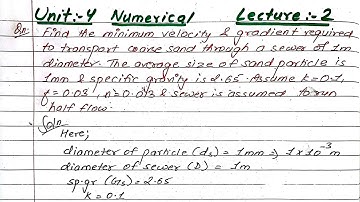 Unit:-4 Numerical Lecture:-2
Qn: Find the minimum velocity & gradient required
to transport coarse sand through a sewer of 1m
diameter. The average size of sand particle is
1mm & specific gravity is 2.65. Assume k=0.1,
f=0.03, n=0.013 & sewer is assumed to run
half flow.
Soln
Here;
diameter of particle (ds) = 1mm => 1×10⁻³ m
diameter of sewer (D) = 1m
sp.gr (Gs) = 2.65
k = 0.1